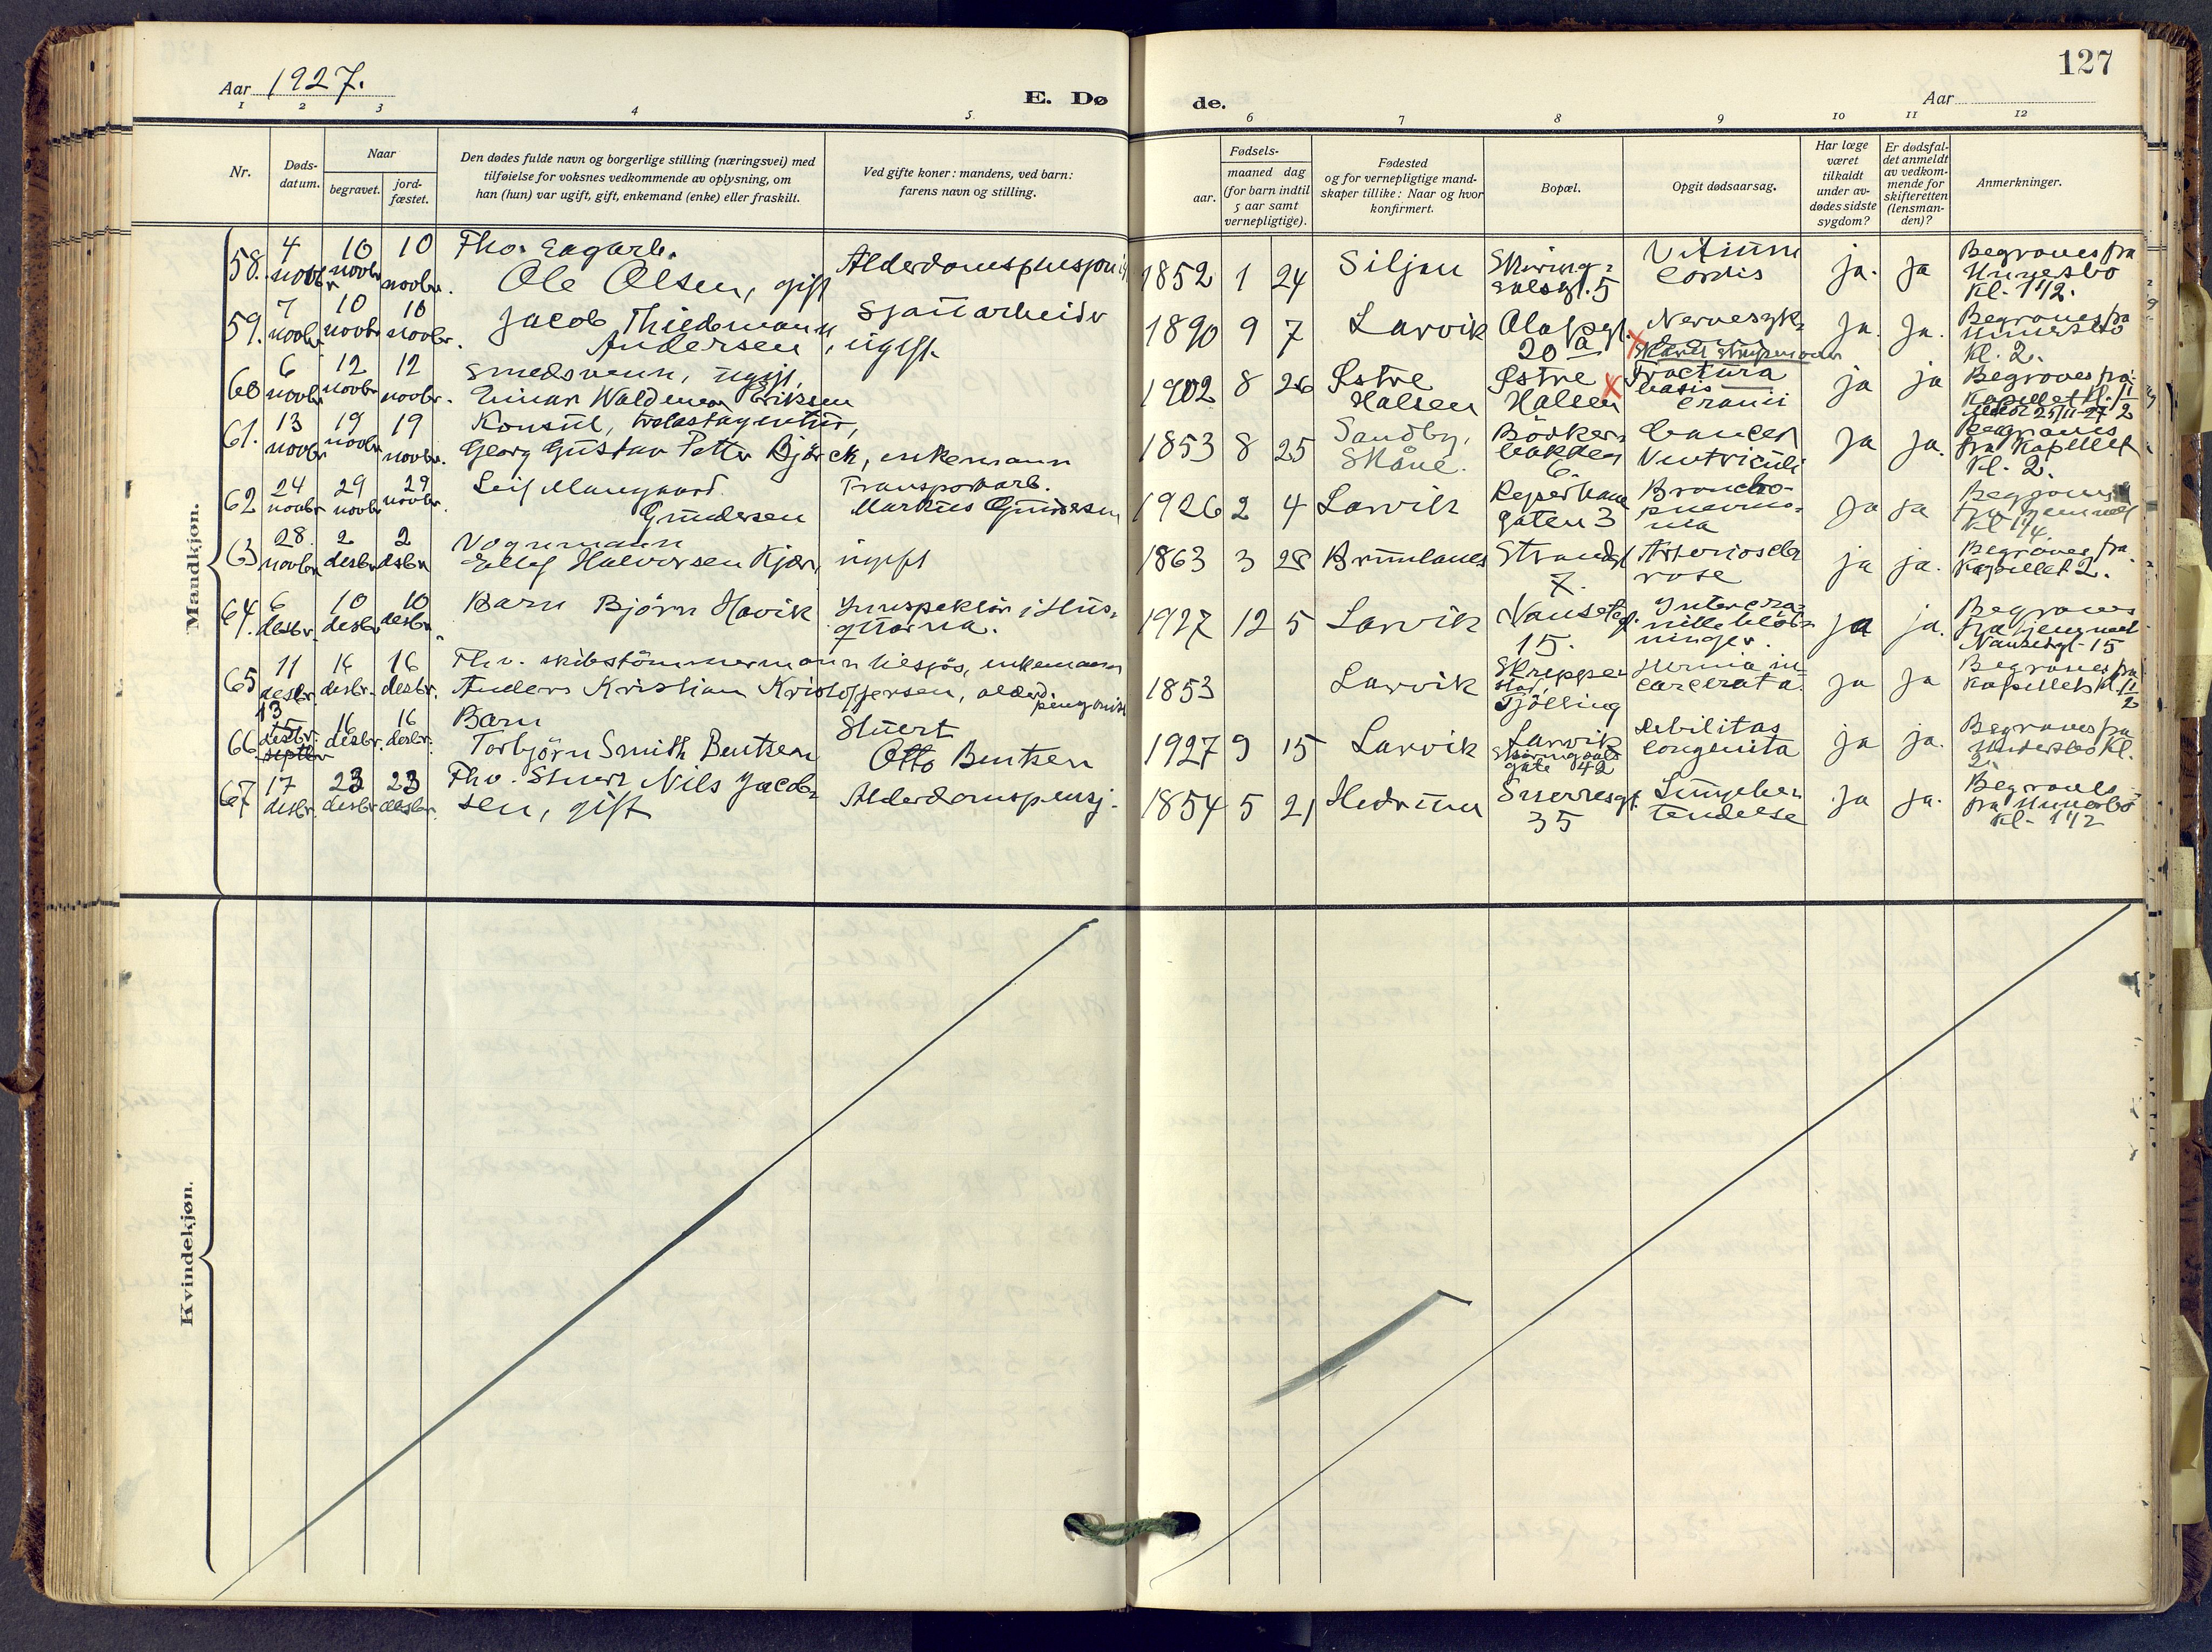 127
Aar 1927.
E. Dø
de.
Aar
1 2 3 4 5 6 7 8 9 10 11 12
Nr.
Døds-
datum.
Naar
begravet.
jord-
fæstet.
Den dødes fulde navn og borgerlige stilling (næringsvei) med
tilføielse for voksnes vedkommende av oplysning, om
han (hun) var ugift, gift, enkemand (enke) eller fraskilt.
Ved gifte koner: mandens, ved barn:
farens navn og stilling.
Fødsels-
aar.
maaned dag
(for barn indtil
5 aar samt
vernepligtige).
Fødested
og for vernepligtige mand-
skaper tillike: Naar og hvor
konfirmert.
Bopæl.
Opgit dødsaarsag.
Har læge
været
tilkaldt
under av-
dødes sidste
sygdom?
Er dødsfal-
det anmeldt
av vedkom-
mende for
skifteretten
(lensman-
den)?
Anmerkninger.
Mandkjøn.
58. 4 novbr 10 novbr 10 novbr.
Fhv.
Ole Olsen, gift
1852 1 24 Siljan
5
Vitium
cordis
ja. ja
Begraves fra
Kl. 1 1/2.
59. 7 novbr 10 novbr 10 novbr.
Jacob Thiedemann
Andersen, ugift.
Sjauarbeider
1890 9 7 Larvik
20 a
ja. ja.
Begraves fra
Kl. 2.
60 6 novbr 12 novbr 12 novbr.
Smedsvenn, ugift,
Einar Waldemar Eriksen
1902 8 26 Østre
Halsen
Østre
Halsen
Fractura
basis
cranii
ja ja
Begraves fra
Kapellet kl.
61. 13 novbr 19 novbr 19 novbr.
Konsul,
Georg Gustav Petter Björck, enkemann
1853 8 25 Sandby,
Skåne.
Bödker-
bakken
6.
Cancer
Ventriculi
ja ja.
Begraves
fra Kapellet
Kl. 2.
62 24 novbr 29 novbr 29 novbr.
Leif
Gundersen
Transportarb.
Markus Gundersen
1926 2 4 Larvik
gaten 3
Broncho-
pneumo-
nia
ja ja
63 28. novbr 2 desbr 2 desbr
Vognmann
Ellef Halvorsen Kjær,
ugift
1863 3 28 Brunlanes
Strandgt
7.
Arterioscle
rose
ja ja.
Begraves fra
Kapellet 2.
64. 6 desbr. 10 desbr 10 desbr.
Barn Björn Havik
1927 12 5 Larvik
Nansetgt.
15.
ja ja.
Begraves
fra hjemmet
Nansetgt. 15
65 11 desbr. 16 desbr. 16 desbr.
Fhv. skibstömmermann tilsjös, enkemann
Anders Kristian Kristoffersen, alderd.
pensjonist
1853 Larvik
Tjölling
Hernia in
carcerata.
ja ja
Begraves fra
Kapellet kl.
66. 13 15 desbr. septbr 16 desbr. 16 desbr.
Barn
Torbjörn Smith Bentsen
Stuert
Otto Bentsen
1927 9 15 Larvik
Larvik
gate 42
Debilitas
congenita
ja ja.
Begraves fra
kl.
2.
67 17 desbr. 23 desbr 23 desbr.
Fhv. Stuert Nils Jacob-
sen, gift
Alderdomspensj.
1854 5 21 Hedrum
Sverresgt.
35
Lungebe-
tendelse
ja ja.
Begraves
fra
Kl. 1 1/2
Kvindekjøn.